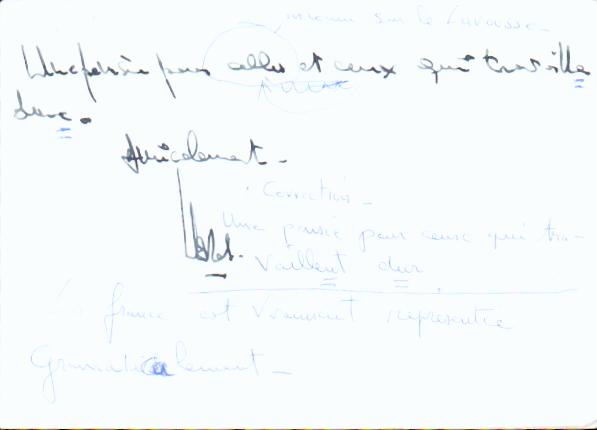 inconnu sur le Larousse -
Une pensée pour celles et ceux qui travaille
dure.
Amicalement -
Correction -
Une pensée pour ceux qui tra-
vaillent dur.
La france est vraiment representée
Grammaticalement -